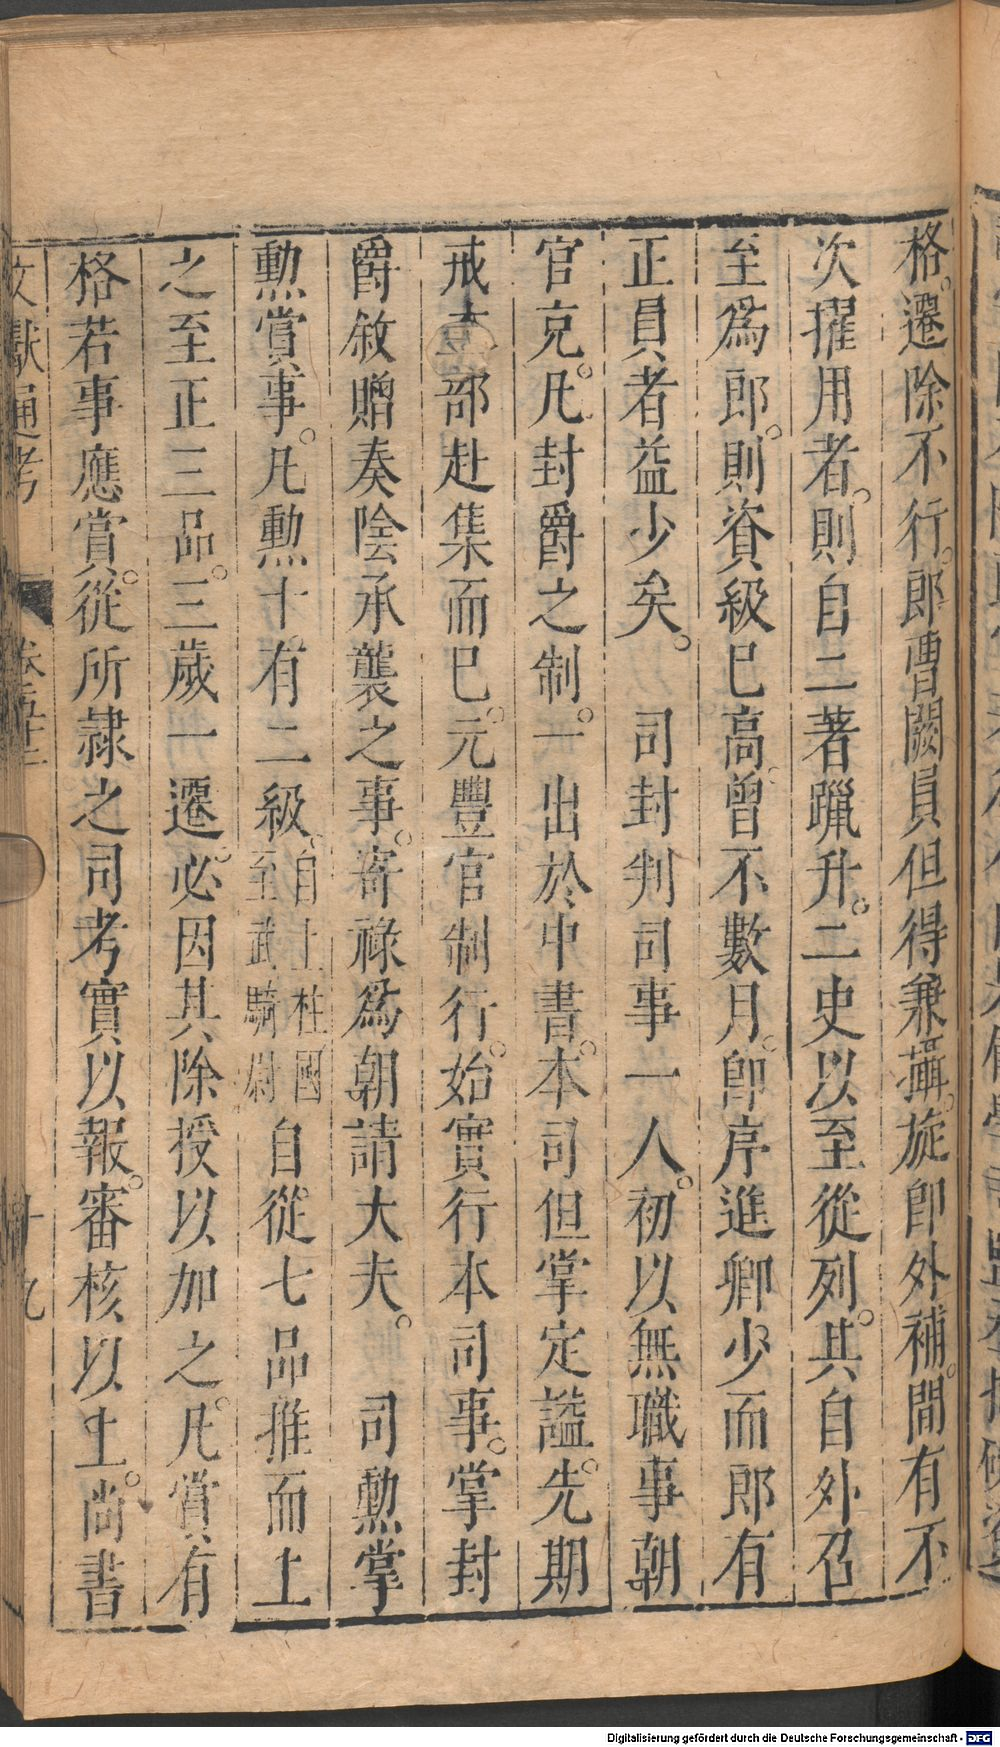 格。遷除不行。郎曹闕員但得兼攝。旋即外補。間有不
次擢用者。則自二著躐升。二史以至從列。其自外召
至爲郎。則資級已高。曾不數月。卽序進卿少。而郎有
正員者益少矣。　司封判司事一人。初以無職事朝
官充。凡封爵之制。一出於中書。本司但掌定謚。先期
戒部赴集而已。元豐官制行。始實行本司事。掌封
爵敘贈奏陰承襲之事。寄祿爲朝請大夫。　司勳掌
勲賞事。凡勳十有二級。自上柱國至武騎尉自從七品推而上
之至正三品。三歲一遷。必因其除授以加之。凡賞有
格若事應賞。從所隷之司考實以報。審核以上。尚書
文獻通考　卷五十二　十九
Digitalisierung gefördert durch die Deutsche Forschungsgemeinschaft - DFG